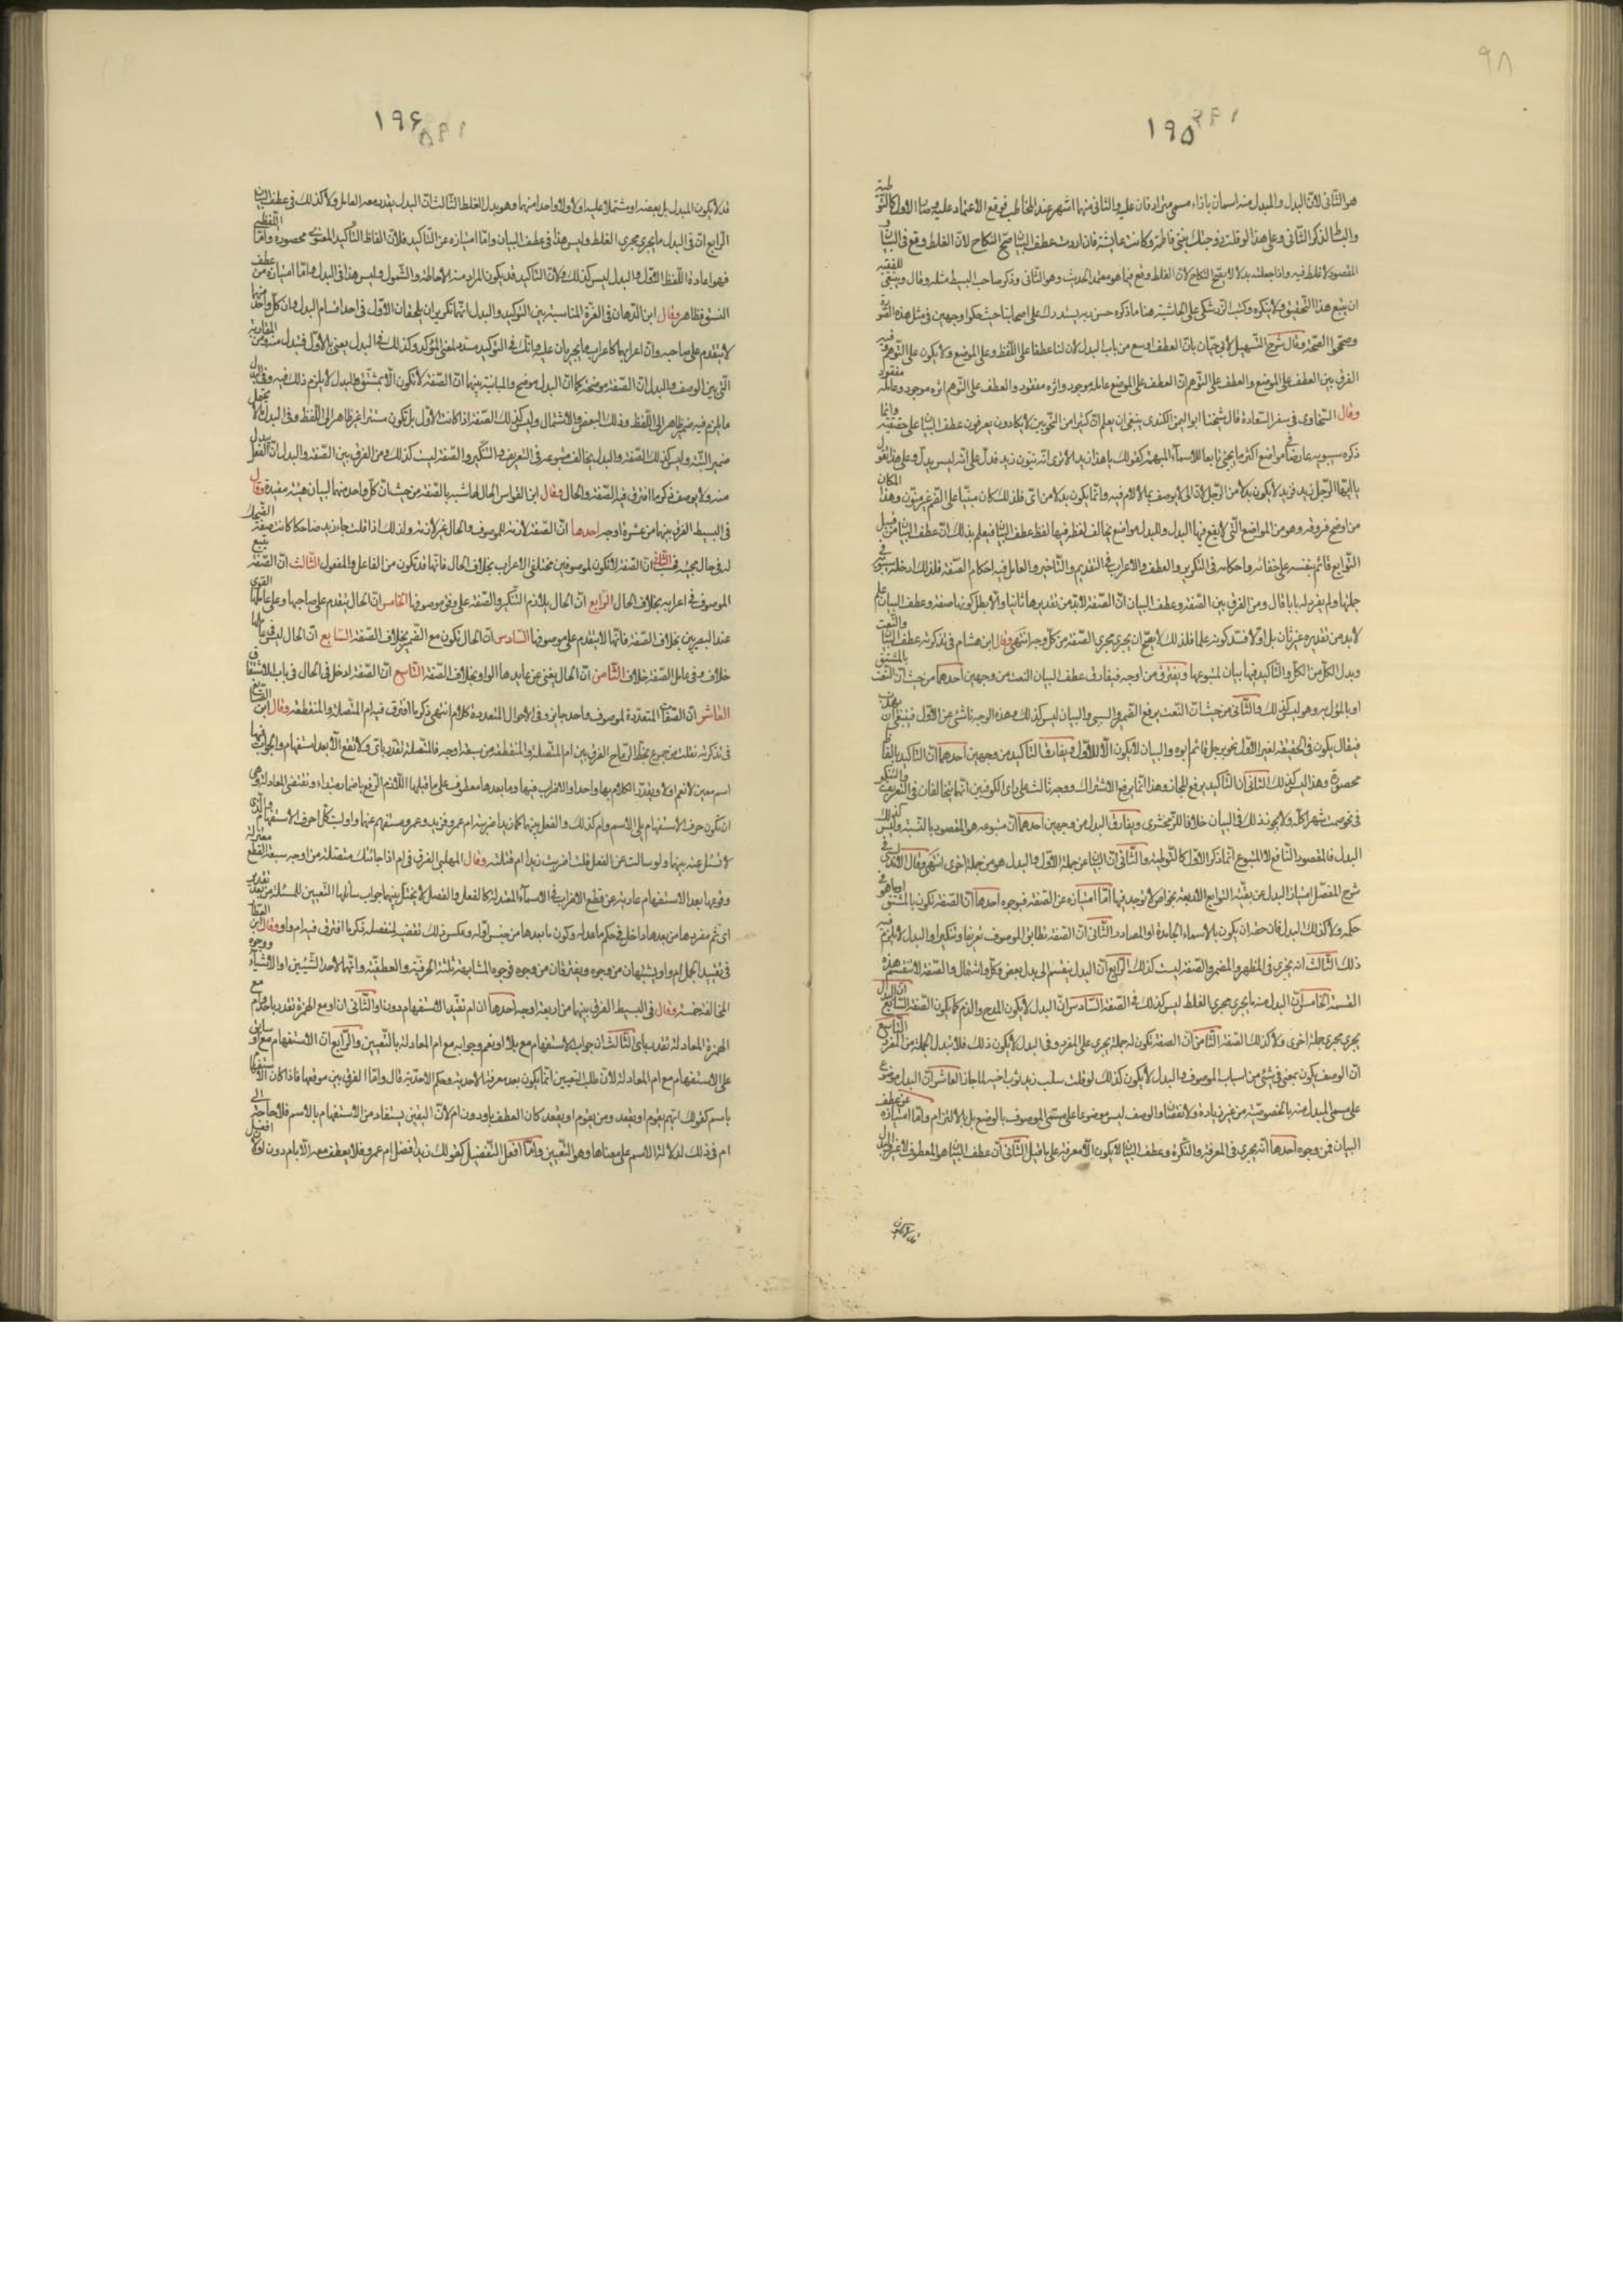 ١٩٥
هو الثانى لان البدل والمبدل منه اسمان بازاء مسمى مترادفان عليه والثانى منهما اشهر عند المخاطب فوقع الاعتماد عليه وصار الاول كالتوطية
والبساط لذكر الثانى وعلى هذا لو قلت زوجتك بنتى فاطمة وكانت عايشة فان اردت عطف البيان صح النكاح لان الغلط وقع فى البيان و
المقصود لا غلط فيه وان جعلته بدلا لا يصح النكاح لان الغلط وقع فيما هو معتمد الحديث وهو الثانى وذكر صاحب البسيط مثله وقال وينبغى للفقيه
ان يتبع هذا التحقيق ولا ينكره وكتب الزركشى على الحاشية هنا ما ذكره حسن به يستدرك على اصحابنا حيث حكوا وجهين فى مثل هذه الصورة
وصححوا الصحة وقال شرح التسهيل لابى حيان باب العطف اوسع من باب البدل لان لنا عطفا على اللفظ وعلى الموضع وعلى التوهم
الفرق بين العطف على الموضع والعطف على التوهم ان العطف على الموضع عامله موجود واثره مفقود والعطف على التوهم اثره موجود وعامله مفقود
وقال السخاوى فى سفر السعادة قال شيخنا ابو اليمن الكندى ينبغى ان يعلم ان كثيرا من النحويين لا يكادون يعرفون عطف البيان على حقيقته وانما
ذكره سيبويه عارضا فى مواضع اكثر ما يجئ تابعا للاسماء المبهمة كقولك يا هذا زيد الا ترى انه ينون زيد فدل على انه ليس ببدل وعلى هذا تقول
يا ايها الرجل زيد فزيد لا يكون بدلا من الرجل لان اى لا يوصف بما لا لام فيه وانما يكون بدلا من اى فلذلك كان مبنيا على الضم غير منون وهذا المكان
من اوضح فروقه وهو من المواضع التى لا يقع فيها البدل وللبدل مواضع يخالف لفظه فيها لفظ عطف البيان فيعلم بذلك ان عطف البيان من قبيل
التوابع قائم بنفسه على خفائه واحكامه فى التكرير والعطف والاعراب فى التقديم والتاخير والعامل فيه احكام الصفة فلذلك ادخله سيبويه فى
جملتها ولم يفرد له بابا قال ومن الفرق بين الصفة وعطف البيان ان الصفة لابد من تقديرها ثانيا والا بطل كونها صفة وعطف البيان علم
لابد من تقديره غير ثان بل اولا فسد كونه علما فلذلك لا يصح ان يجرى مجرى الصفة من كل وجه انتهى وقال ابن هشام فى تذكرته عطف البيان والنعت
وبدل الكل من الكل والتاكيد فيها بيان لمتبوعها ويفترق من اوجه فيفارق عطف البيان النعت من وجهين احدهما من حيث ان النعت بالمشتق
او بالمؤل به وهو ليس كذلك والثانى من حيث ان النعت يرفع الضمير والسببى والبيان ليس كذلك وهذه الوجه ناشئ عن الاول فينبغى ان
فيقال يكون فى الحقيقة لغير الاول نحو برجل قائم ابوه والبيان لا يكون الا للاول ويفارق التاكيد من وجهين احدهما ان التاكيد بالفاظ
محصورة وهذا ليس كذلك الثانى ان التاكيد يرفع المجاز وهذا انما يرفع الاشتراك ووجه ثالث على راى الكوفيين انهما يتخالفان فى التعريف والتنكير
فى نحو صمت شهرا كله ولا يجوز ذلك فى البيان خلافا للزمخشرى ويفارق البدل من وجهين احدهما ان متبوعه هو المقصود بالنسبة وليس كذلك
البدل فالمقصود التابع لا المتبوع انما ذكر الاول كالتوطئة والثانى ان البيان من جملة الاول والبدل هو من جملة اخرى انتهى وقال الاندلسى فى
شرح المفصل امتياز البدل عن بقية التوابع الاربعة بخواص لا توجد فيها اما امتيازه عن الصفة فبوجوه احدها ان الصفة تكون بالمشتق او ما هو فى
حكمه ولا كذلك البدل فان حقه ان يكون بالاسماء الجامدة او المصادر الثانى ان الصفة تطابق الموصوف تعريفا وتنكيرا والبدل لا يلزم فيه
ذلك الثالث انه يجرى فى المظهر والمضمر والصفة ليست كذلك الرابع ان البدل ينقسم الى بدل بعض وكل واشتمال والصفة لا تنقسم هذه
القسمة الخامس ان البدل منه ما يجرى مجرى الغلط ليس كذلك فى الصفة السادس ان البدل لا يكون للمدح والذم كما يكون الصفة السابع ان البدل
يجرى مجرى جملة اخرى ولا كذلك الصفة الثامن ان الصفة تكون له جملة يجرى على المفرد وفى البدل لا يكون ذلك فلا تبدل الجملة من المفرد التاسع
ان الوصف يكون بمعنى فى شئ من اسباب الموصوف والبدل لا يكون كذلك لو قلت سلب زيد ثوب اخيه لما جاز العاشر ان البدل موضوع
على مسمى المبدل منه بالخصوصية من غير زيادة ولا نقصان والوصف ليس موضوعا على مسمى الموصوف بالوضع بل بالالتزام واما امتيازه عن عطف
البيان فمن وجوه احدها انه يجرى فى المعرفة والنكرة وعطف البيان لا يكون الا معرفة على ما قيل الثانى ان عطف البيان هو المعطوف لا غير والبدل
قد لا يكون
١٩٦
قد لا يكون المبدل بل بعضه او مشتملا عليه او لا ولا واحدا منهما وهو بدل الغلط الثالث ان البدل يقدر معه العامل ولا كذلك فى عطف البيان
الرابع ان فى البدل ما يجرى مجرى الغلط وليس هذا فى عطف البيان واما امتيازه عن التاكيد فلان الفاظ التاكيد المعنوى محصورة واما اللفظى
فهو اعادة اللفظ الاول والبدل ليس كذلك ولان التاكيد قد يكون المراد منه الاحاطة والشمول وليس هذا فى البدل واما امتيازه من عطف
النسق فظاهر وقال ابن الدهان فى الغرة المناسبة بين التوكيد والبدل انهما تكريران يلحقان الاول فى احد اقسام البدل وان كل واحد منهما
لا يتقدم على صاحبه وان اعرابهما كاعراب ما يجريان عليه وانك فى التوكيد مسدد لمعنى المؤكد وكذلك فى البدل يعنى بالاول فتبدل منه ومن المقاربة
التى بين الوصف والبدل ان الصفة موضحة كما ان البدل موضح والمباينة بينهما ان الصفة لا تكون الا بمشتق والبدل لا يلزم ذلك فيه وفى البدل
ما يلزم فيه ضمير ظاهر الى اللفظ وذلك البعض والاشتمال وليس كذلك الصفة اذا كانت الاول بل تكون مستترا غير ظاهر الى اللفظ وفى البدل ما لا يتحمل
ضمير البتة وليس كذلك الصفة والبدل يخالف متبوعه فى التعريف والتنكير والصفة ليست كذلك ومن الفرق بين الصفة والبدل ان الفعل يبدل
منه ولا يوصف ذكر ما افترق فيه الصفة والحال وقال ابن القواس الحال لها شبه بالصفة من حيث ان كل واحد منهما لبيان هيئة مقيدة وقال
فى البسيط الفرق بينهما من عشرة اوجه احدها ان الصفة لازمة للموصوف والحال غير لازمة ولذلك اذا قلت جاء زيد ضاحكا كانت صفة الضحك
له فى حال مجيئه فحسب الثانى ان الصفة لا تكون لموصوفين مختلفى الاعراب بخلاف الحال فانها قد تكون من الفاعل والمفعول الثالث ان الصفة تتبع
الموصوف فى اعرابه بخلاف الحال الرابع ان الحال يلازم التنكير والصفة على وفق موصوفها الخامس ان الحال يتقدم على صاحبها وعلى عاملها القوى
عند البصريين بخلاف الصفة فانها لا يتقدم على موصوفها السادس ان الحال تكون مع الضمير بخلاف الصفة السابع ان الحال ليس فى عاملها
خلاف وفى عامل الصفة خلاف الثامن ان الحال يغنى عن عايدها الواو بخلاف الصفة التاسع ان الصفة ادخل فى الحال فى باب الاشتقاق
العاشر ان الصفات المتعددة لموصوف واحد جايز وفى الاحوال المتعددة كلام انتهى ذكر ما افترق فيه ام المتصلة والمنقطعة وقال ابن الصائغ
فى تذكرته نقلت من مجموع بخط ابن الرماح الفرق بين ام المتصلة والمنقطعة من سبعة اوجه فالمتصلة تقدر باى ولا تقع الا بعد استفهام والجواب فيها
اسم معين لا نعم او لا ويقدر الكلام بها واحدا ولا اضراب فيها وما بعدها معطوف على ما قبلها لا لازم الرفع باضمار مبتداء وتقتضى المعادلة وهى
ان يكون حرف الاستفهام يلى الاسم وام كذلك والفعل بينهما كما زيد اضربته ام عمرو فزيد وعمرو مستفهم عنهما واوليت كل حرف الاستفهام والذى
لا تسئل عنه بينهما ولو سالت عن الفعل قلت اضربت زيدا ام قتلته وقال المهلبى الفرق فى ام اذا جائتك متصلة من اوجه سبعة لقطع معتزلة
وقوعها بعد الاستفهام عارية عن قطع الاضراب فى الاسماء المعتدلة كالفعل والفصل لا يختل بينهما جواب سائلها التعيين للمسئلة
اى ثم مفردها من بعدها داخل فى حكم ما عدله وكون ما بعدها من جنس اوله وعكس ذلك نقيض لمنفصلة ذكر ما افترق فيه ام واو وقال ابن العطار
فى تقييد الجمل ام واو يشتبهان من وجوه ويفترقان من وجوه فوجوه المشابهة ثلثة الحرفية والعطفية وانهما لاحد الشيئين او الاشياء ووجوه
المخالفة خمسة وقال فى البسيط الفرق بينهما من اربعة اوجه احدها ان ام تفيد الاستفهام دون او والثانى ان او مع الهمزة تقدر باحد وام مع
الهمزة المعادلة تقدر باى الثالث ان جواب الاستفهام مع او بلا او نعم وجوابه مع ام المعادلة بالتعيين والرابع ان الاستفهام مع او سابق
على الاستفهام مع ام المعادلة لان طلب التعيين انما يكون بعد معرفة الاحدية وحكم الاحدية قال واما الفرق بين موقعها فاذا كان الاستفهام
باسم كقولك ايهم يقوم او يقعد ومن يقوم او يقعد كان العطف باو دون ام لان التعيين يستفاد من الاستفهام بالاسم فلا حاجة الى
ام فى ذلك لدلالة الاسم على معناها وهو التعيين واما افعل التفضيل كقولك زيد افضل ام عمرو فلا يعطف معه الا بام دون او